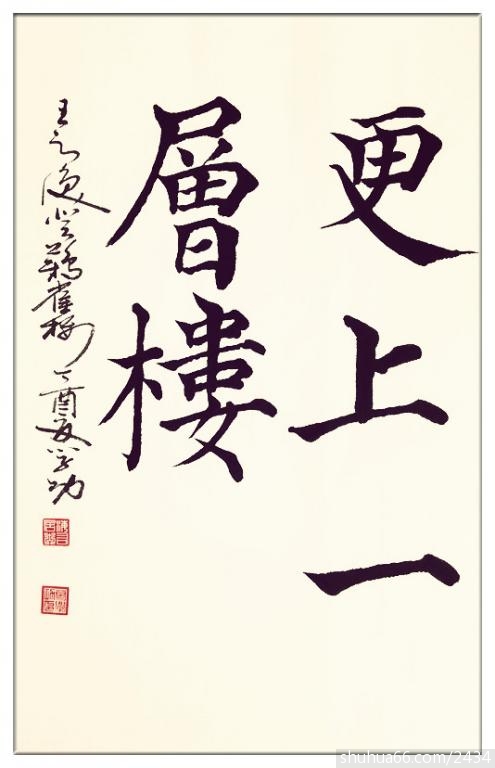 更上一
層樓
王之渙登鸛雀樓 乙酉夏
shuhua66.com/2434